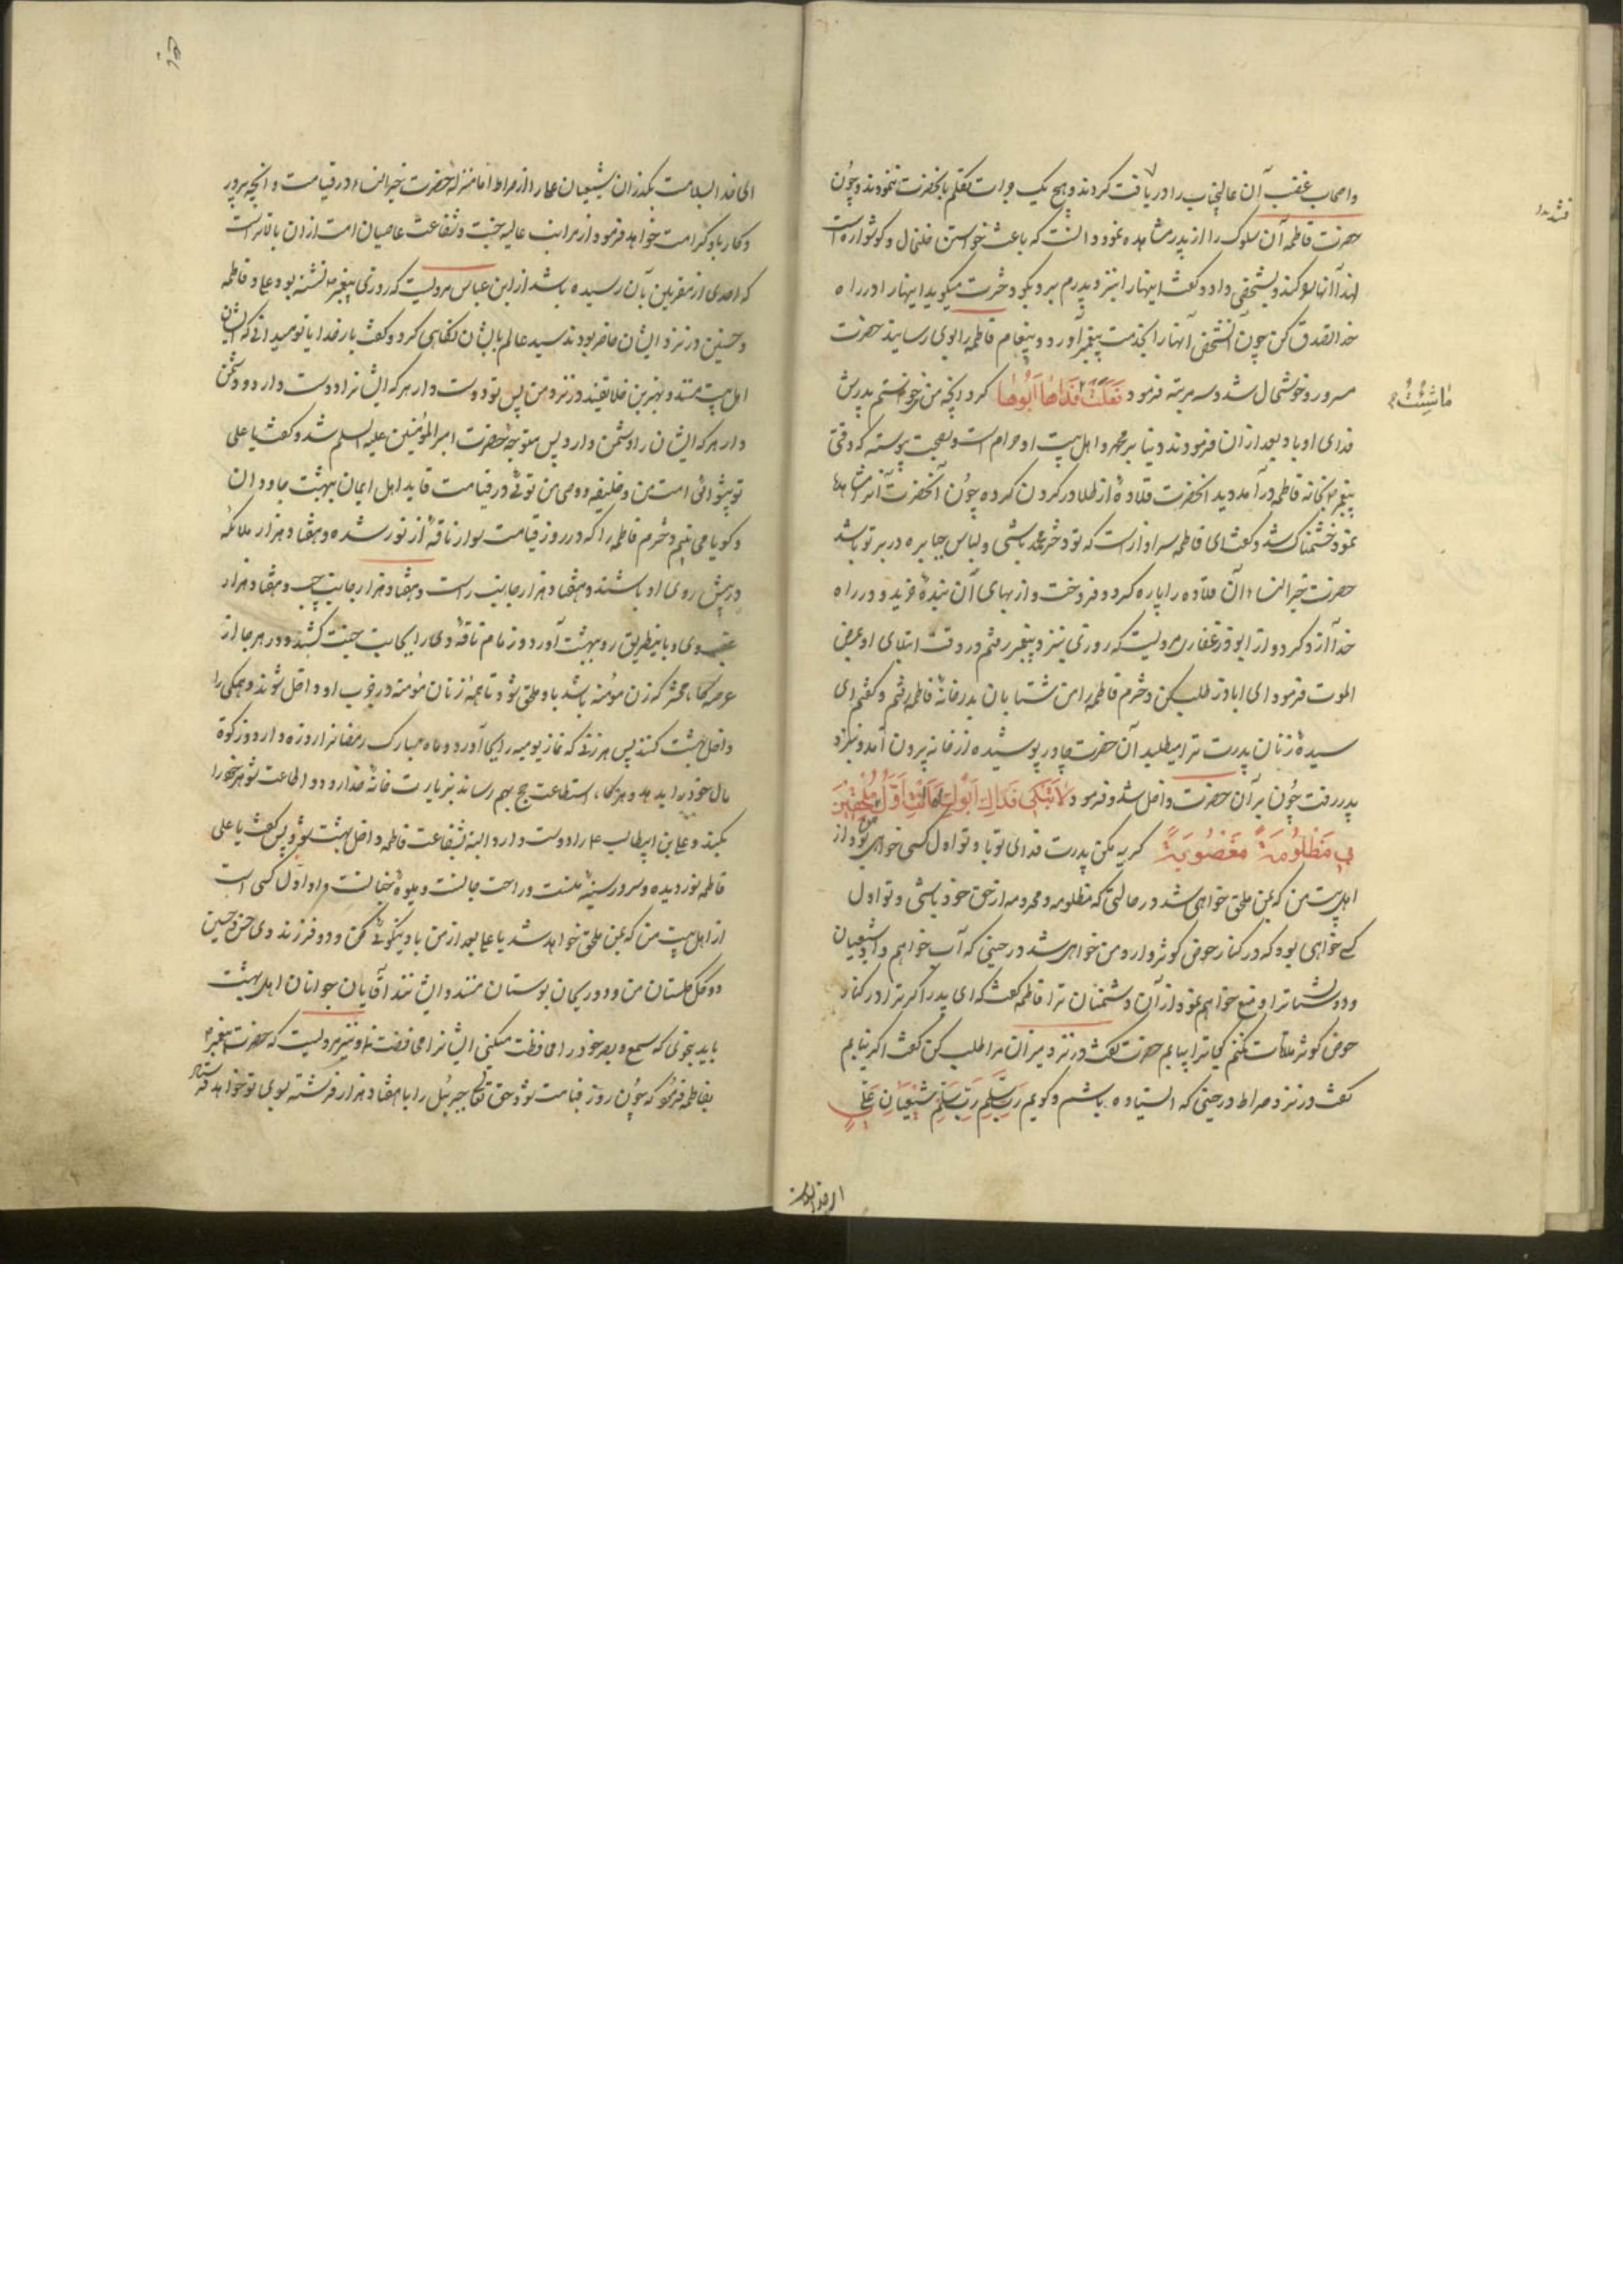 واصحاب غضب آن عالیجناب را دریافت کردند و هیچ یک جرات تکلم بانحضرت ننمودند و چون
حضرت فاطمه آن سلوک را از پدر مشاهده نمود دانست که باعث خواستن خلخال و کوشواره است
لهذا آنها را کنده بشخصی داد و کفت اینها را بنزد پدرم ببر و بکو دخترت میکوید اینها را در راه
خدا تصدق کن چون آنشخص آنها را بخدمت پیغمبر آورد و پیغام فاطمه را بوی رسانید حضرت
مسرور و خوشحال شد و سه مرتبه فرمود فَعَلَتْ فَدَاهٰا اَبُوهٰا کرد آنچه من میخواستم پدرش
فدای او باد و بعد از ان فرمودند دنیا بر محمد و اهل بیت او حرام است و بصحت پیوسته که وقتی
پیغمبر بخانه فاطمه در آمد دید انحضرت قلاده از طلا در کردن کرده چون آنحضرت آنرا مشاهده
نمود خشمناک شد و کفت ای فاطمه سزاوار است که تو دختر محمد باشی و لباس جبابره در بر تو باشد
حضرت خیر النساء آن قلاده را پاره کرد و فروخت و از بهای آن بنده خرید و در راه
خدا آزاد کرد و از ابوذر غفاری مرویست که روزی بنزد پیغمبر رفتم در وقت ابتلای او بمرض
الموت فرمود ای اباذر طلب کن دخترم فاطمه را من شتابان بدر خانه فاطمه رفتم و کفتم ای
سیده زنان پدرت ترا میطلبد آن حضرت چادر پوشیده از خانه بیرون آمد و بنزد
پدر رفت چون بر آن حضرت داخل شد فرمود لاٰ تَبْکِی فَدَاكِ اَبُوكِ فَاَنْتِ اَوَّلُ مُلْحَقِینَ
بِی مَظْلُومَةً مَغْصُوبَةً کریه مکن پدرت فدای تو باد تو اول کسی خواهی بود از
اهل بیت من که بمن ملحق خواهی شد در حالتی که مظلومه و محرومه از حق خود باشی و تو اول
کسی خواهی بود که در کنار حوض کوثر وارد من خواهی شد در حینی که آب خواهم داد شیعیان
و دوستان ترا و منع خواهم نمود از آن دشمنان ترا فاطمه کفت که ای پدر اکر ترا در کنار
حوض کوثر ملاقات نکنم کجا ترا بیابم حضرت کفت در نزد میزان مرا طلب کن کفت اکر نیابم
کفت در نزد صراط در حینی که ایستاده باشم و کویم رَبِّ سَلِّم رَبِّ سَلِّم شیعیان علی
مٰا شِئْتُ
الی خدا بسلامت بکذران شیعیان علی را از صراط اما منزله حضرت خیر النساء در قیامت و آنچه پرور
دکار باو کرامت خواهد فرمود از مراتب عالیه جنت و شفاعت عاصیان امت از ان بالاتر است
که احدی از مقربین بآن رسیده باشد از ابن عباس مرویست که روزی پیغمبر نشسته بود و علی و فاطمه
و حسنین در نزد ایشان حاضر بودند سید عالم بایشان نکاهی کرد و کفت بار خدایا تو میدانی که ایشان
اهل بیت منند و بهترین خلایقند در نزد من پس تو دوست دار هر که ایشانرا دوست دارد و دشمن
دار هر که ایشان را دشمن دارد پس متوجه حضرت امیر المؤمنین علیه السلم شد و کفت یا علی
تو پیشوای امت من و خلیفه و وصی من توئی در قیامت قاید اهل ایمان ببهشت جاودان
و کویا می بینم دخترم فاطمه را که در روز قیامت سوار ناقه از نور شده و هفتاد هزار ملائکه
در پیش روی او باشند و هفتاد هزار جانب راست و هفتاد هزار جانب چپ و هفتاد هزار
عقب وی و باینطریق رو ببهشت آورد و زمام ناقه وی را بجانب جنت کشند و در هر جا از
عرصه کاه محشر که زن مؤمنه باشد باو ملحق شود تا همه زنان مؤمنه در قرب او داخل شوند و همکی را
داخل بهشت کنند پس هر زنی که نماز یومیه را بجا آورد و ماه مبارک رمضانرا روزه دارد و زکوة
مال خود را بدهد و هر کاه استطاعت حج بهم رساند بزیارت خانه خدا رود و اطاعت شوهر خود را
بکند و علی بن ابیطالب را دوست دارد البته بشفاعت فاطمه داخل بهشت شود پس کفت یا علی
فاطمه نور دیده و سرور سینه منست و راحت جانست و میوه جنانست و او اول کسی است
از اهل بیت من که بمن ملحق خواهد شد یا علی بعد از من باو نیکوئی کن و دو فرزند وی حسن و حسین
دو کل کلستان من و دو ریحان بوستان منند و ایشانند آقایان جوانان اهل بهشت
باید بنحوی که سمع و بصر خود را محافظت میکنی ایشانرا محافظت نما و نیز مرویست که حضرت پیغمبر
بفاطمه فرمود که چون روز قیامت شود حق تعالی جبرئیل را با هفتاد هزار فرشته بسوی تو خواهد فرستاد